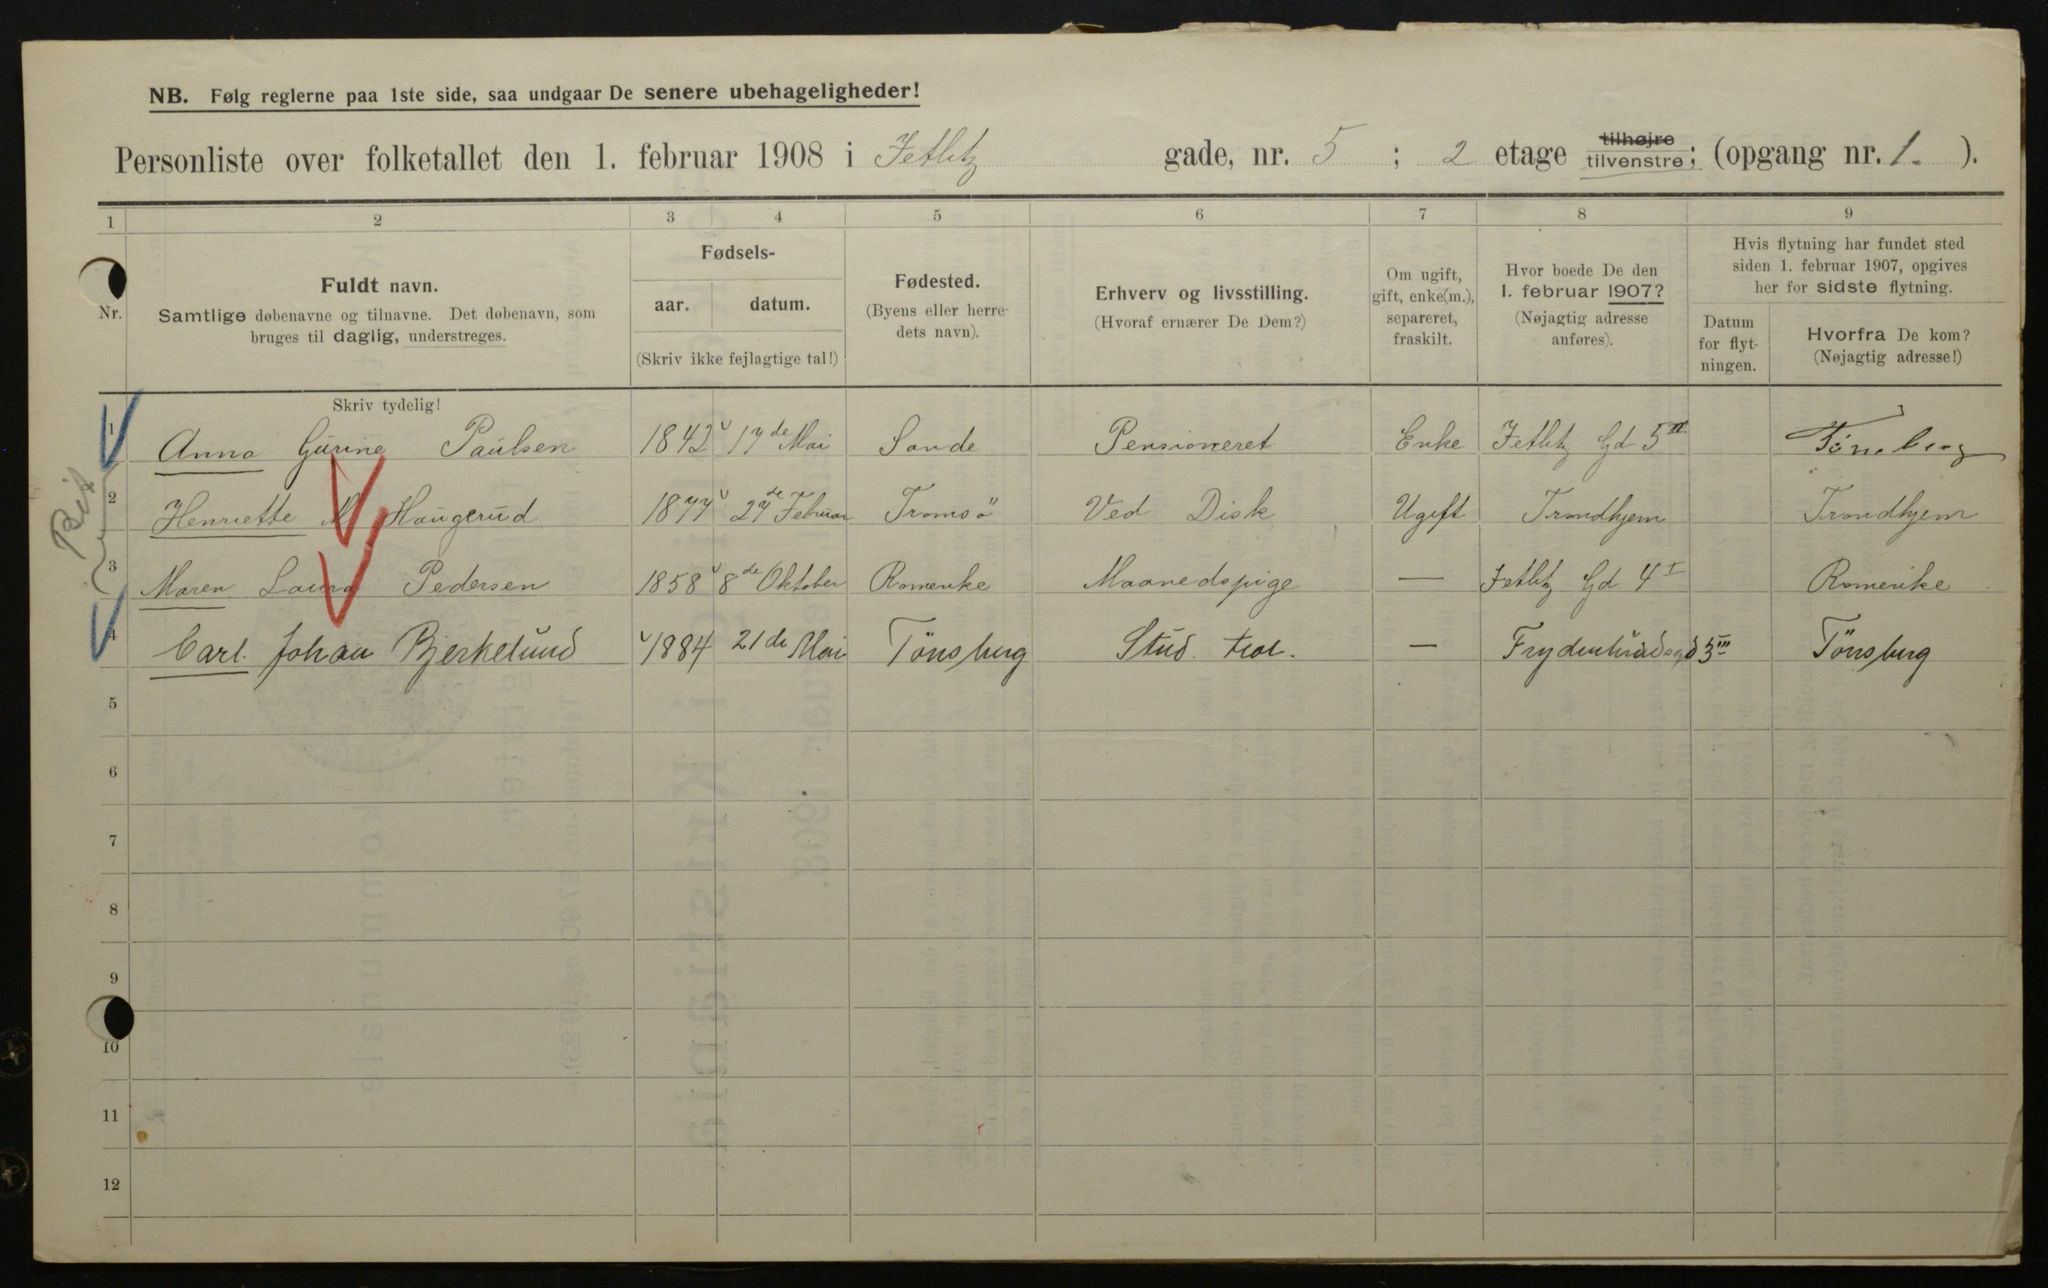 NB. Følg reglerne paa 1ste side, saa undgaar De senere ubehageligheder!
Personliste over folketallet den 1. februar 1908 i Jetlitz gade, nr. 5 ; 2 etage tilhøjre tilvenstre; (opgang nr. 1. ).
1 2 3 4 5 6 7 8 9
Nr.
Fuldt navn.
Samtlige døbenavne og tilnavne. Det døbenavn, som
bruges til daglig, understreges.
Skriv tydelig!
Fødsels-
aar. datum.
(Skriv ikke fejlagtige tal!)
Fødested.
(Byens eller herre-
dets navn).
Erhverv og livsstilling.
(Hvoraf ernærer De Dem?)
Om ugift,
gift, enke(m.),
separeret,
fraskilt.
Hvor boede De den
1. februar 1907?
(Nøjagtig adresse
anføres).
Hvis flytning har fundet sted
siden 1. februar 1907, opgives
her for sidste flytning.
Datum
for flyt-
ningen.
Hvorfra De kom?
(Nøjagtig adresse!)
1 Anna Gurine Paulsen 1842 17de Mai Sande Pensioneret Enke Jetlitz Gd 5 III Tönsberg
2 Henriette M. Haugerud 1877 27de Februar Tromsö Ved Disk Ugift Trondhjem Trondhjem
3 Maren Laura Pedersen 1858 8de Oktober Romerike Maanedspige — Jetlitz Gd 4 I Romerike
4 Carl Johan Bjerkelund 1884 21de Mai Tönsberg Stud. — Frydenlundsgd 3 III Tönsberg
5
6
7
8
9
10
11
12